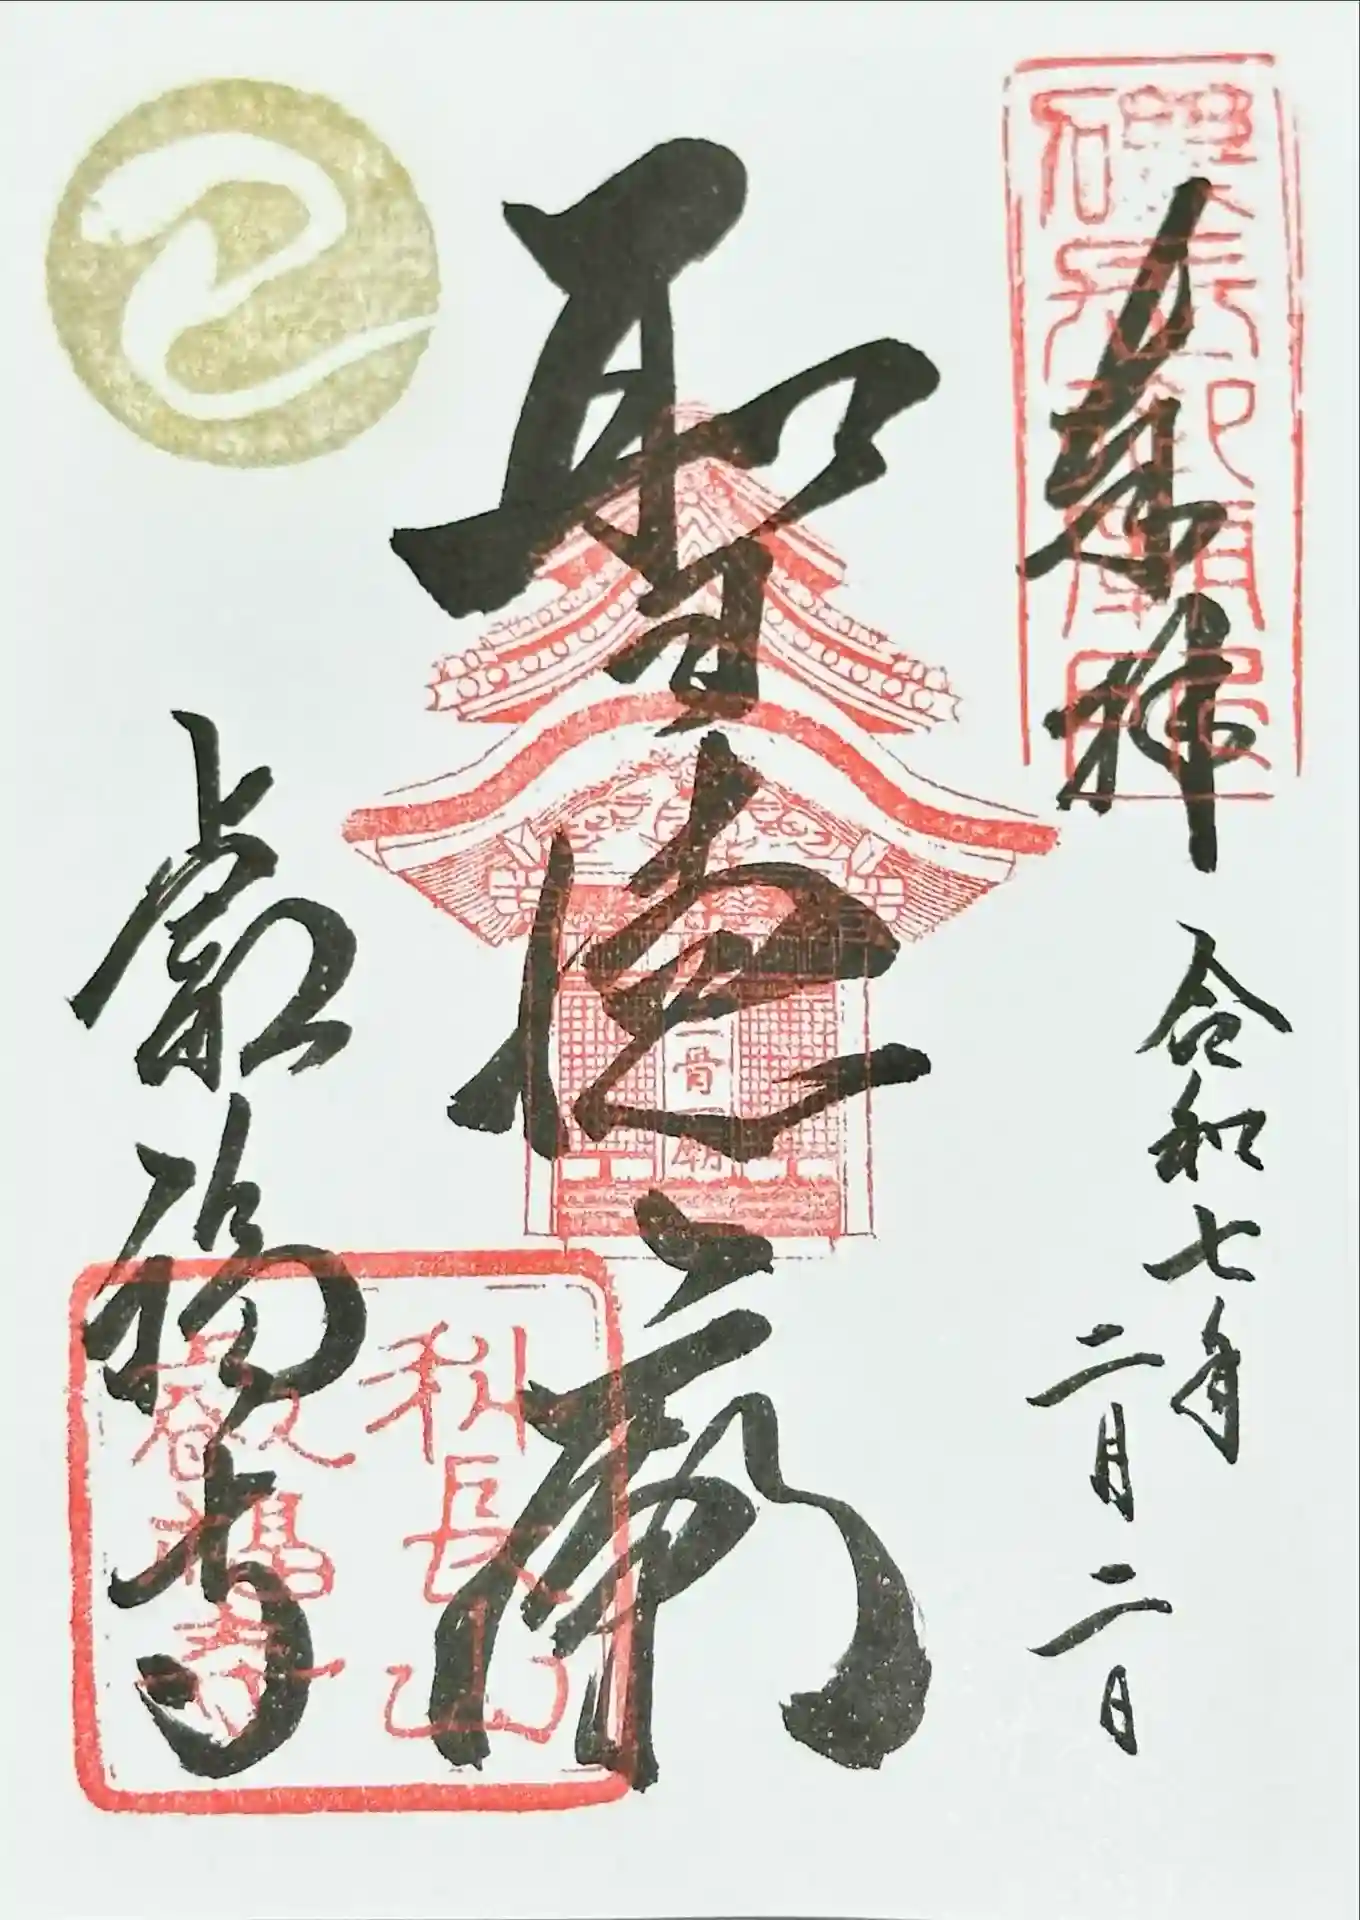 奉拝
令和七年
二月二日
聖徳廟
三骨一廟
叡福寺
科長山
叡福寺
巳